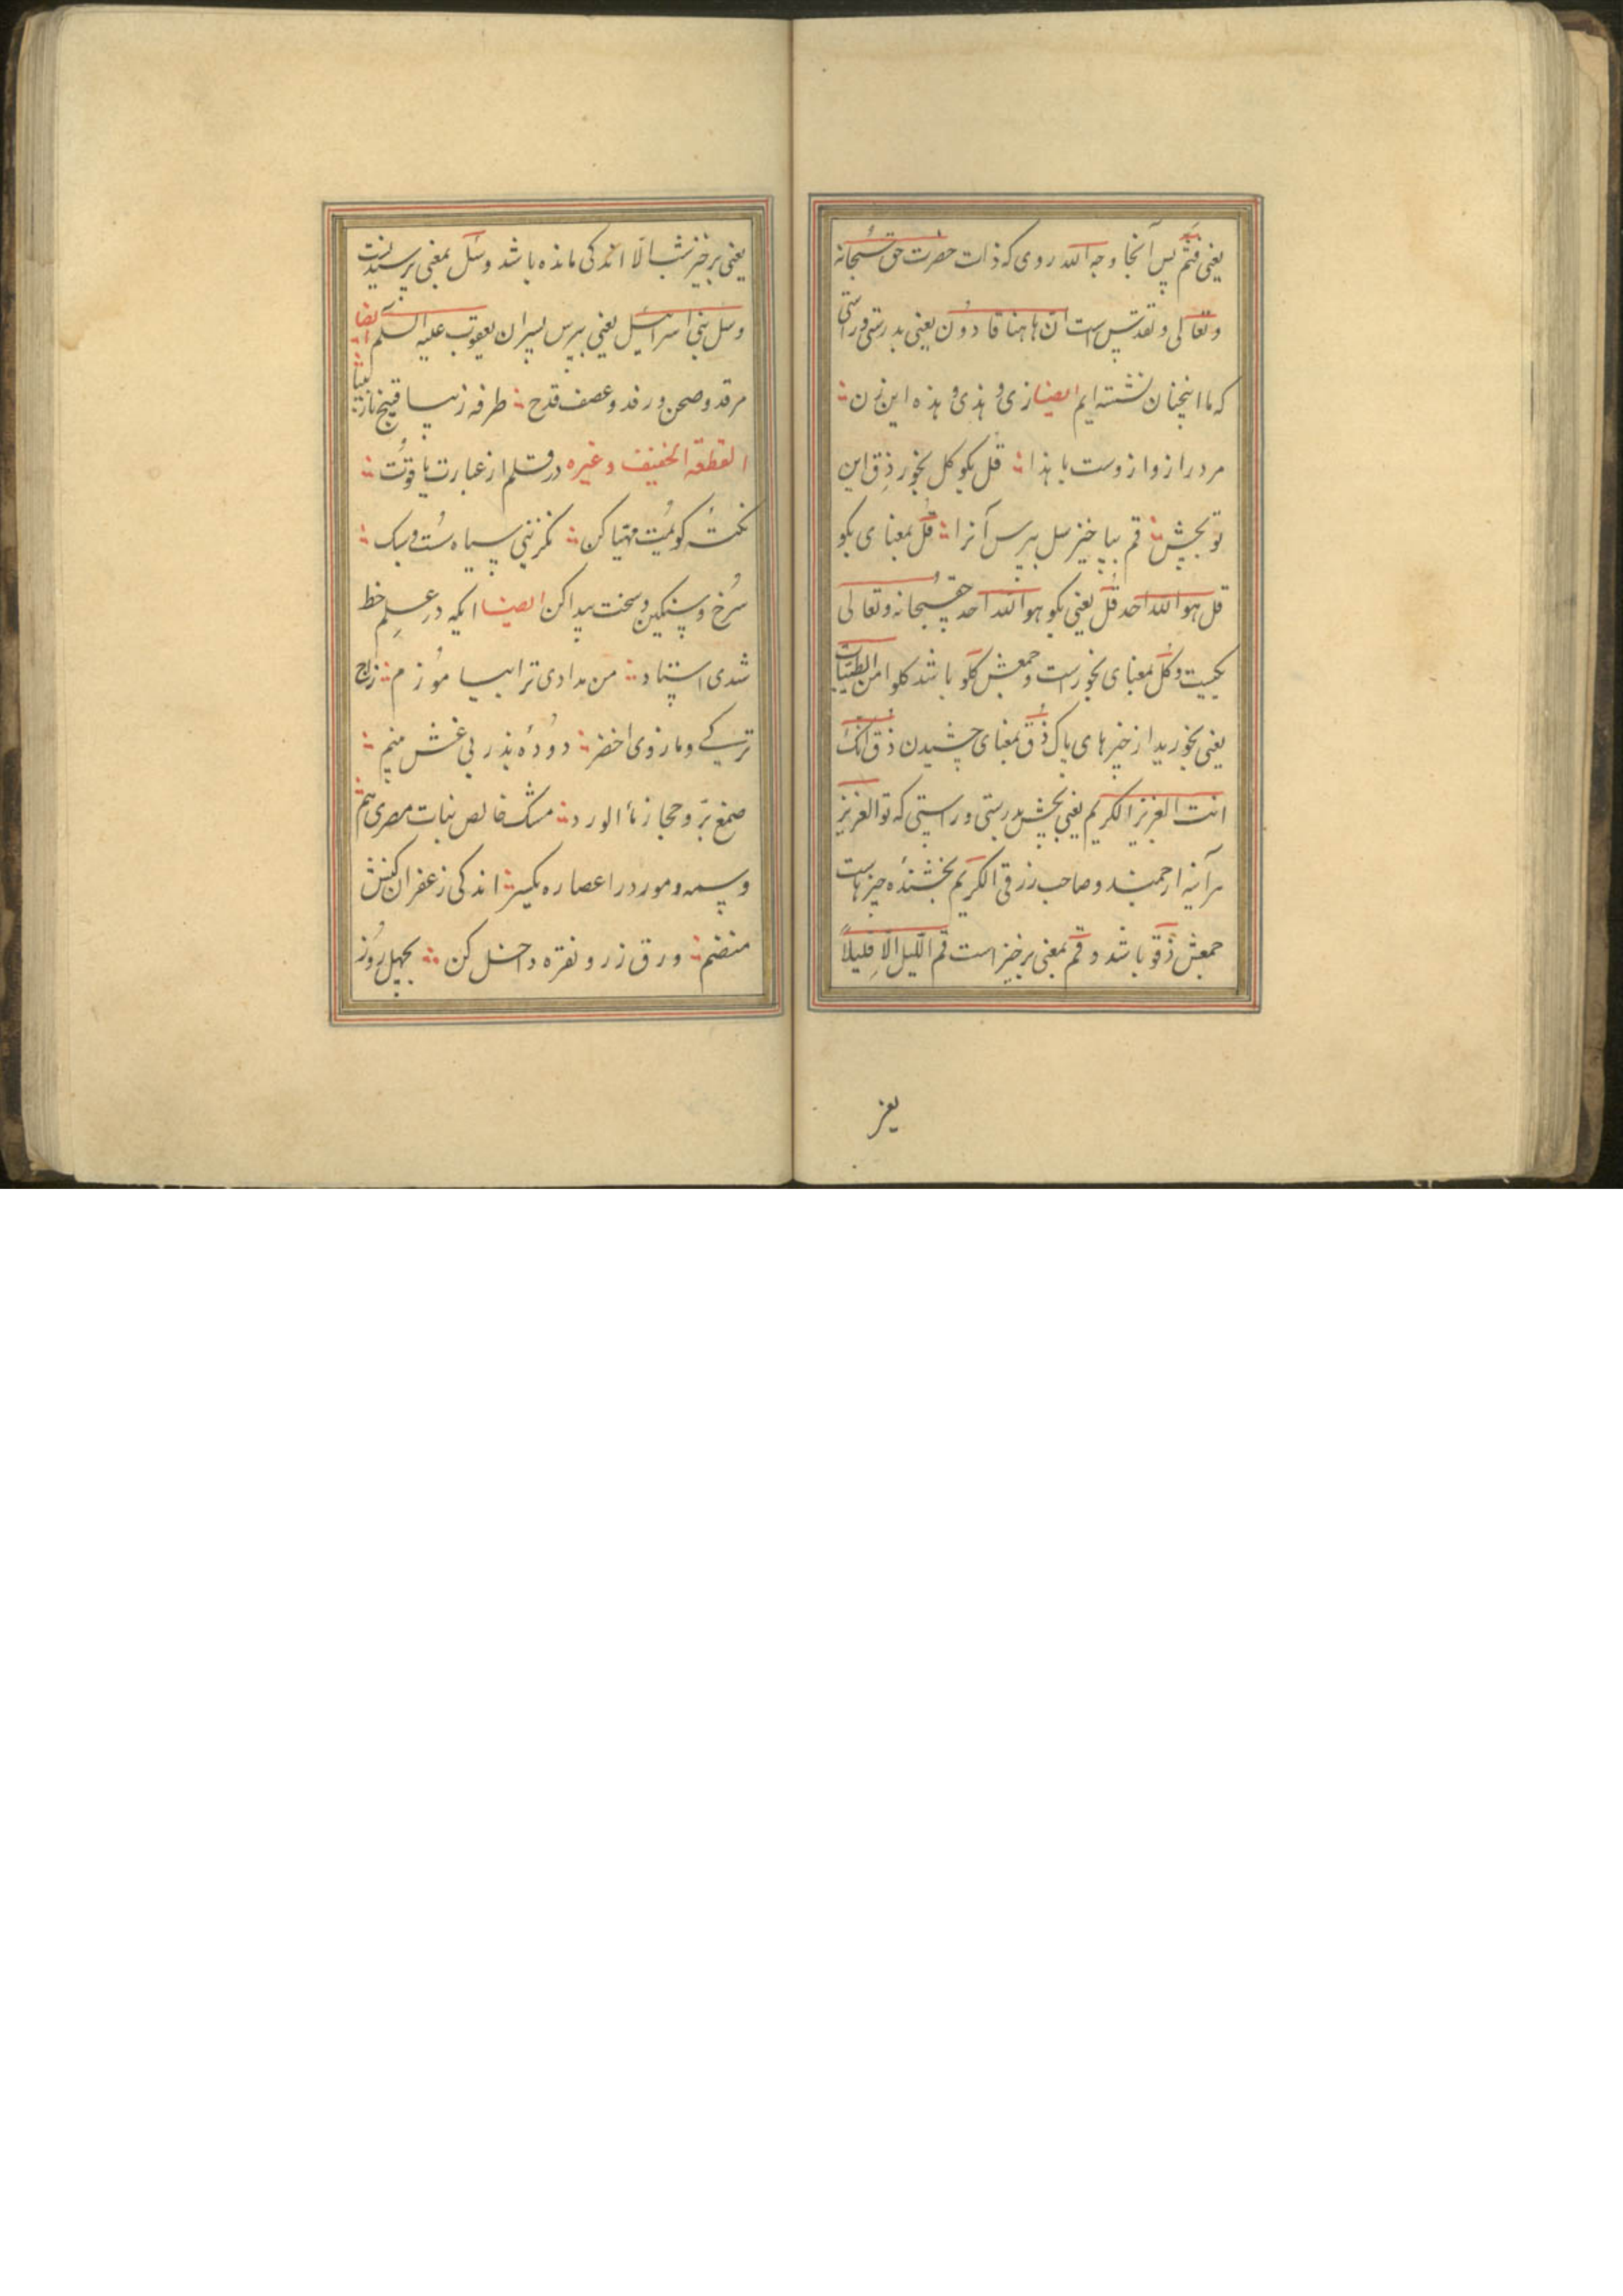 یعنی فثم پس آنجا وجه الله روی که ذات حضرت حق سبحانه
وتعالی وتقدس است ان هاهنا قاعدون یعنی بدرستی وراستی
که ما اینچنان نشسته ایم ایضا زی و هذی و هذه این زن
مرد را ز وا ز وست با هذا قل بکو کل بخور ذق این
تو بچش قم بپا خیز سل بپرس آنرا قل بمعنای بکو
قل هو الله احد قل یعنی بکو هو الله احد حق سبحانه وتعالی
یکیست وکل بمعنای بخور است وجمعش کلو باشد کلوا من الطیبات
یعنی بخورید از خیرهای پاک ذق بمعنای چشیدن ذق انک
انت العزیز الکریم یعنی بچش بدرستی وراستی که تو العزیز
هرآینه ارجمند وصاحب رزقی الکریم بخشندهٔ چیزهاست
جمعش ذقو باشد وقم بمعنی برخیز است قم اللیل الا قلیلا
یعنی
یعنی برخیز شب الا اندکی مانده باشد وسل بمعنی پرسیدنست
وسل بنی اسرائیل یعنی بپرس پسران یعقوب علیه السلم ایضا
مرقد وصحن ورفد وعصف قدح طرفه زیبا قبیح نازیبا
القطعة الخفیف وغیره در قلم از عبارت یاقوت
نکتهٔ کویمت مهیا کن نکزینی سیاه سست وسبک
سرخ وسنکین وسخت پیدا کن ایضا ایکه در علم خط
شدی استاد من مدادی ترا بیاموزم زاج
ترکی ومازوی اخضر دودهٔ بذر بی غش منیم
صمغ بر وحجاز مأ الورد مشک خالص نبات مصری هم
وسمه ومورد را عصاره بکیر اندکی زعفران کنش
منضم ورق زر ونقره داخل کن بچهل روز